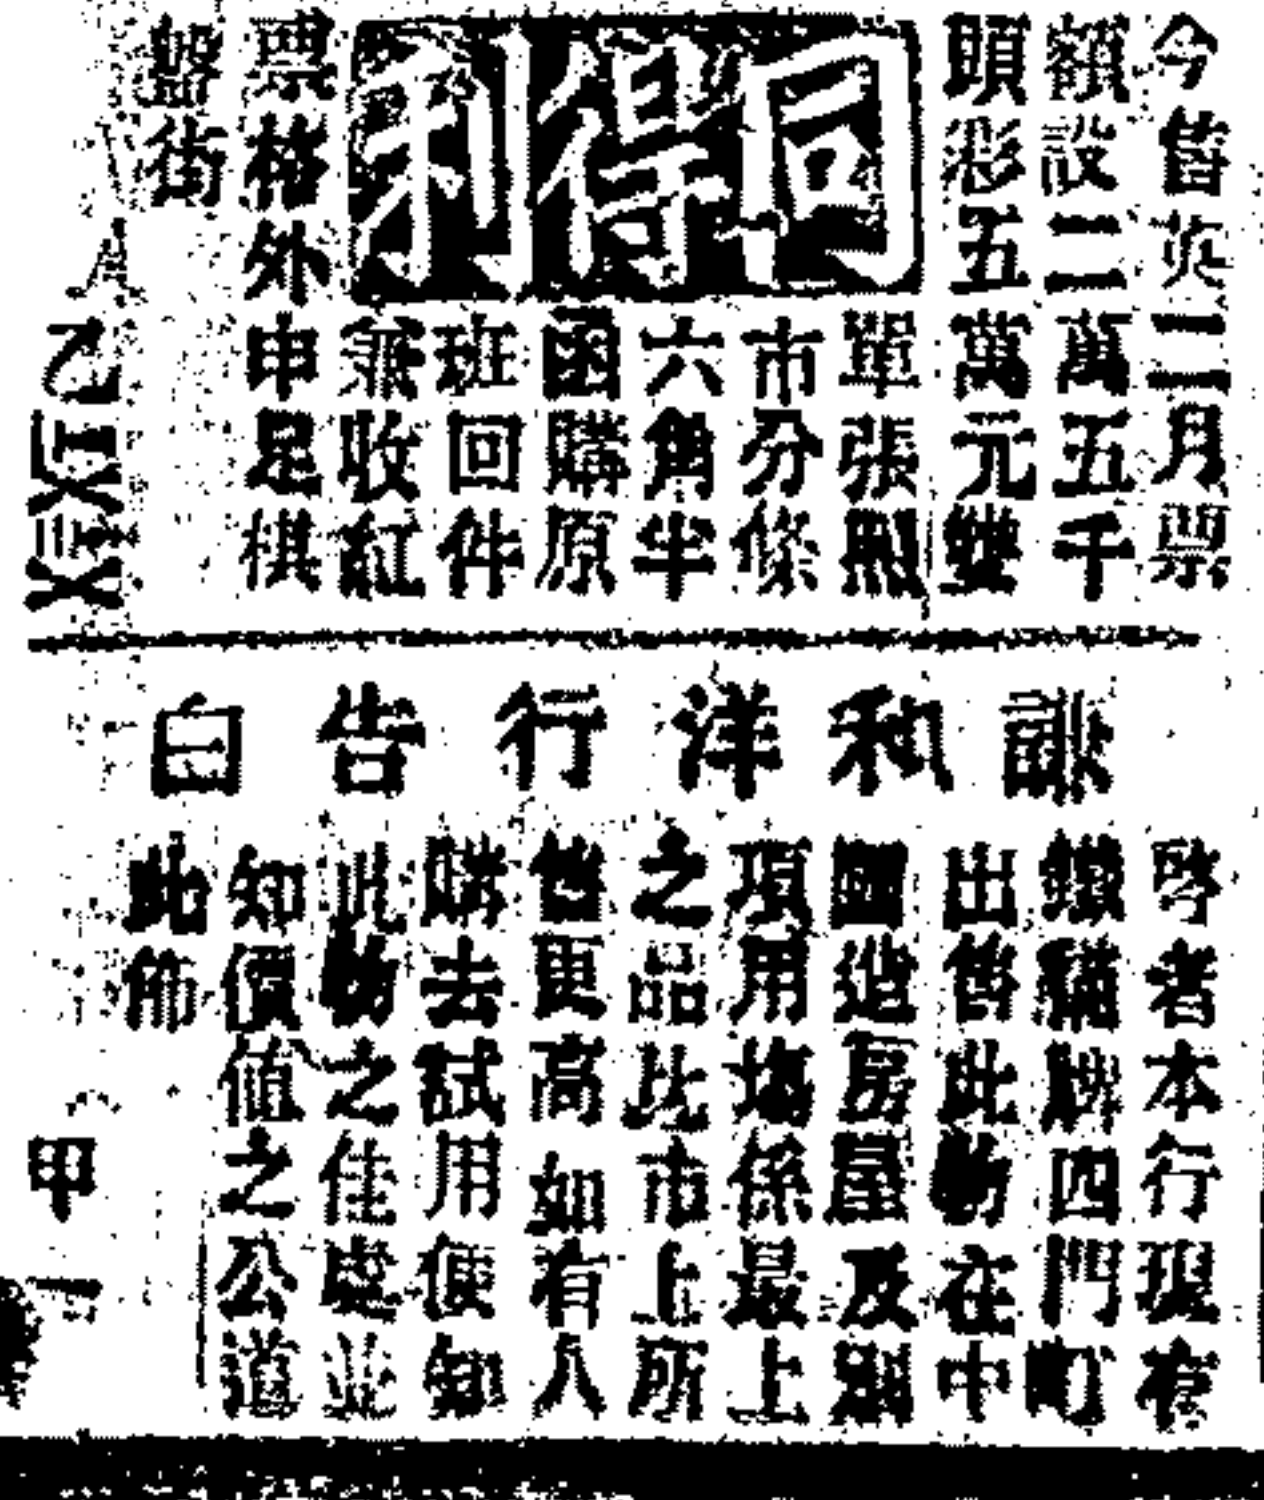 今售英二月票
額設二萬五千
頭彩五萬元雙
同得利
單張照
市分條
六角半
函購原
班回件
兼收紅
票格外申足棋
盤街
謙和洋行告白
啓者本行現有
鐵貓牌四門町
出售此物在中
國造房屋及別
項用塲係最上
之品比市上所
售更高如有人
購去試用便知
此物之佳處並
知價値之公道
此佈
甲一